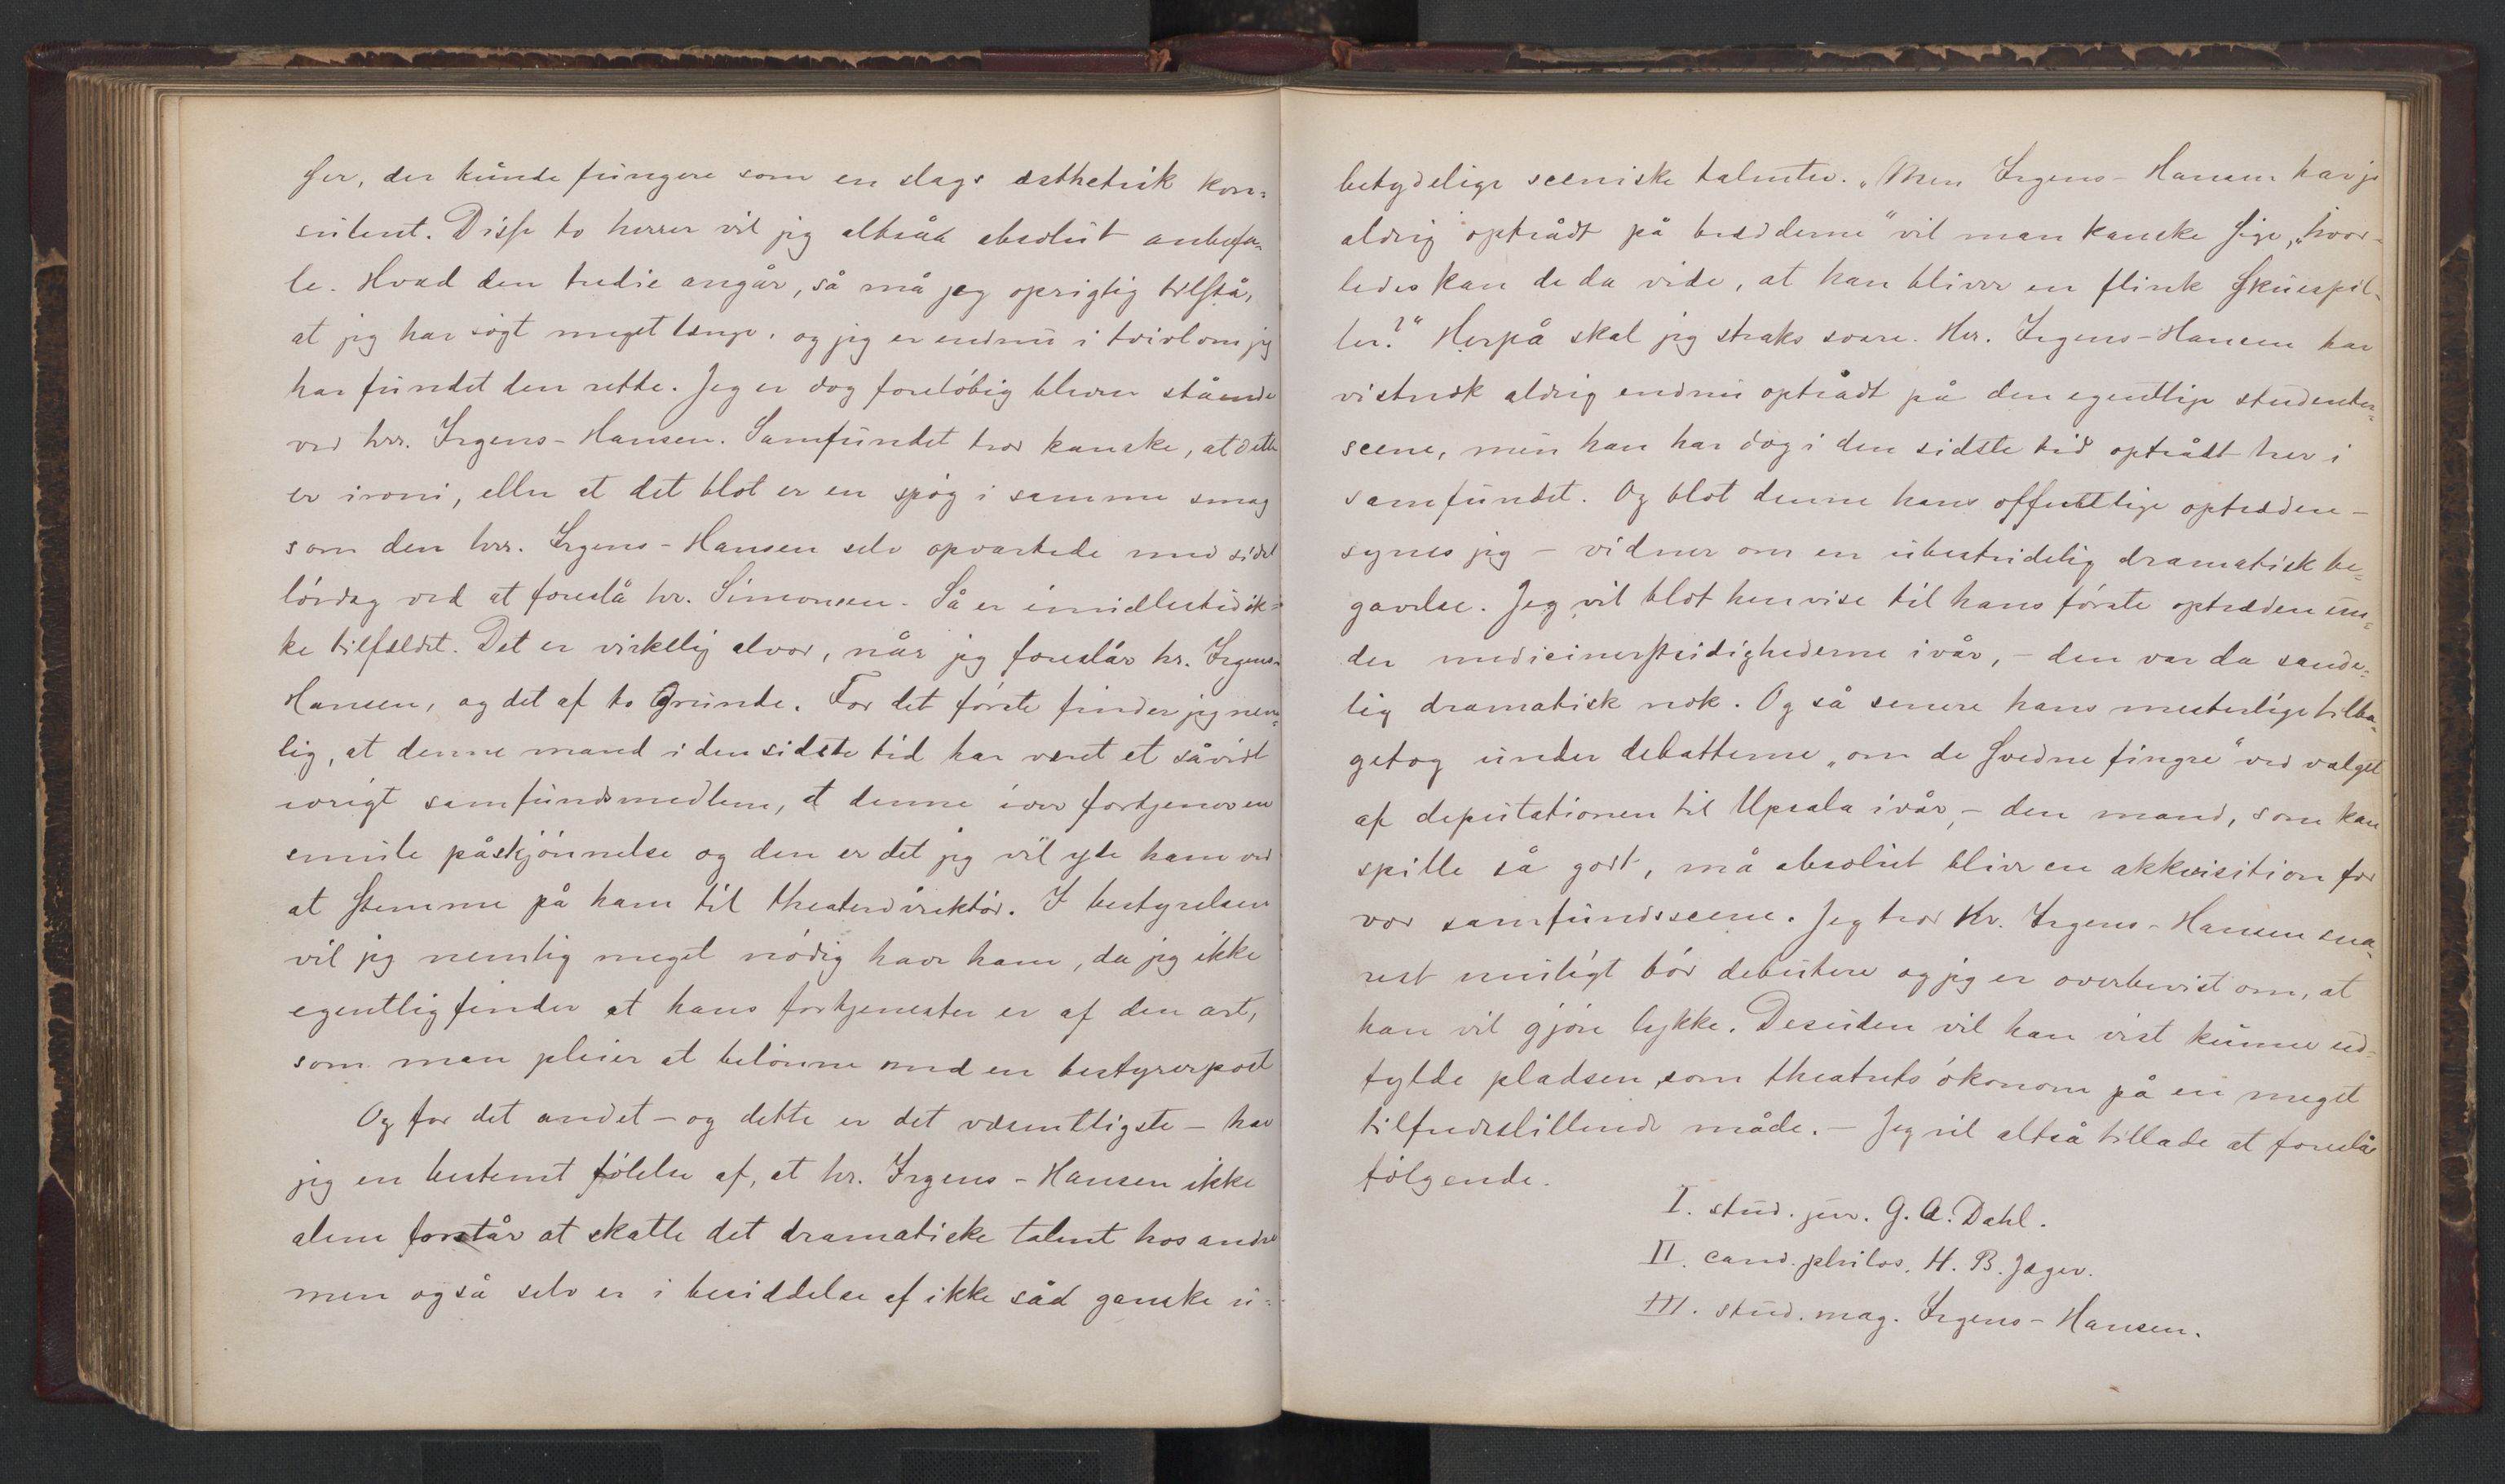 ser, der kunde fungere som en slags æsthetisk kon-
sulent. Disse to herrer vil jeg altsåå absolut anbefa-
le. Hvad den tredie angår, så må jeg oprigtig tilstå,
at jeg har søgt meget længe, og jeg er endnu i tvivl om jeg
har fundet den rette. Jeg er dog foreløbig bleven stående
ved hrr. Irgens-Hansen. Samfundet tror kanske, at dette
er ironi, eller at det blot er en spøg i samme smag
som den hrr. Irgens-Hansen selv opvartede med sidst
lørdag ved at foreslå hr. Simonsen. Så er imidlertid ik-
ke tilfældet. Det er virkelig alvor, når jeg foreslår hr. Irgens-
Hansen, og det af to Grunde. For det første finder jeg nem-
lig, at denne mand i den sidste tid har været et såvidt
ivrigt samfundsmedlem, at denne iver fortjener en
smule påskjønnelse og den er det jeg vil yde ham ved
at stemme på ham til theaterdirektør. I bestyrelsen
vil jeg nemlig meget nødig have ham, da jeg ikke
egentlig finder at hans fortjenester er af den art,
som man pleier at belønne med en bestyrerpost
Og for det andet – og dette er det væsentligste – har
jeg en bestemt følelse af, at hr. Irgens-Hansen ikke
alene forstår at skatte det dramatiske talent hos andre
men også selv er i besiddelse af ikke såå ganske u-
betydelige sceniske talenter. „Men Irgens-Hansen har jo
aldrig optrådt på brædderne" vil man kanske sige, „hvor-
ledes kan de da vide, at han bliver en flink skuespil-
ler?" Herpå skal jeg straks svare. Hr. Irgens-Hansen har
vistnok aldrig endnu optrådt på den egentlige studenter-
scene, men han har dog i den sidste tid optrådt her i
samfundet. Og blot denne hans offentlige optræden –
synes jeg – vidner om en ubestridelig dramatisk be-
gavelse. Jeg vil blot henvise til hans første optræden un-
der medicinerstridighederne ivår, – den var da sande-
lig dramatisk nok. Og så senere hans mesterlige tilba-
getog under debatterne „om de svedne fingre" ved valget
af deputationen til Upsala ivår, – den mand, som kan
spille så godt, må absolut blive en akkvisition for
vor samfundsscene. Jeg tror Hr. Irgens-Hansen sna-
rest muligt bør debutere og jeg er overbevist om, at
han vil gjøre lykke. Desuden vil han vist kunne ud-
fylde pladsen som theatrets økonom på en meget
tilfredsstillende måde. – Jeg vil altså tillade at foreslå
følgende.
I. stud. jur. G. A. Dahl.
II. cand. philos. H. B. Jæger.
III. stud. mag. Irgens-Hansen.